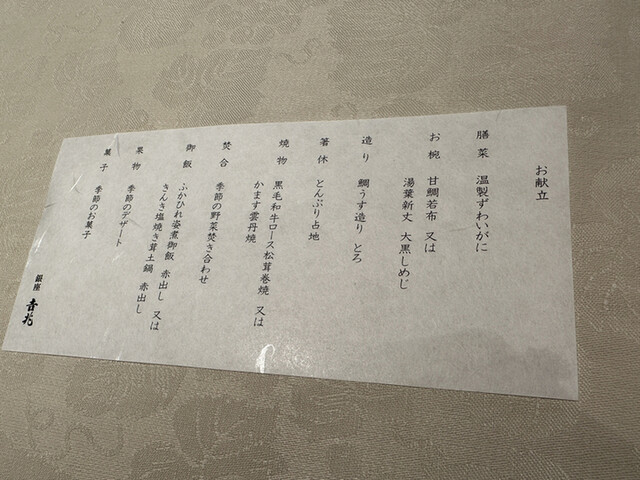 お献立
膳菜 温製ずわいがに
お椀 甘鯛若布 又は
湯葉新丈 大黒しめじ
造り 鯛うす造り とろ
箸休 とんぶり占地
焼物 黒毛和牛ロース松茸巻焼 又は
かます雲丹焼
焚合 季節の野菜焚き合わせ
御飯 ふかひれ姿煮御飯 赤出し 又は
きんき塩焼き茸土鍋 赤出し
果物 季節のデザート
菓子 季節のお菓子
銀座 𠮷兆